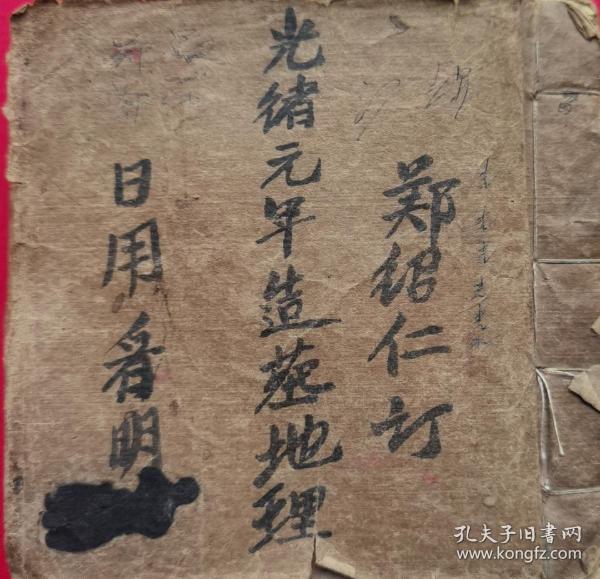 郑绍仁订
光绪元年造墓地理
日用看明
孔夫子旧书网
www.kongfz.com